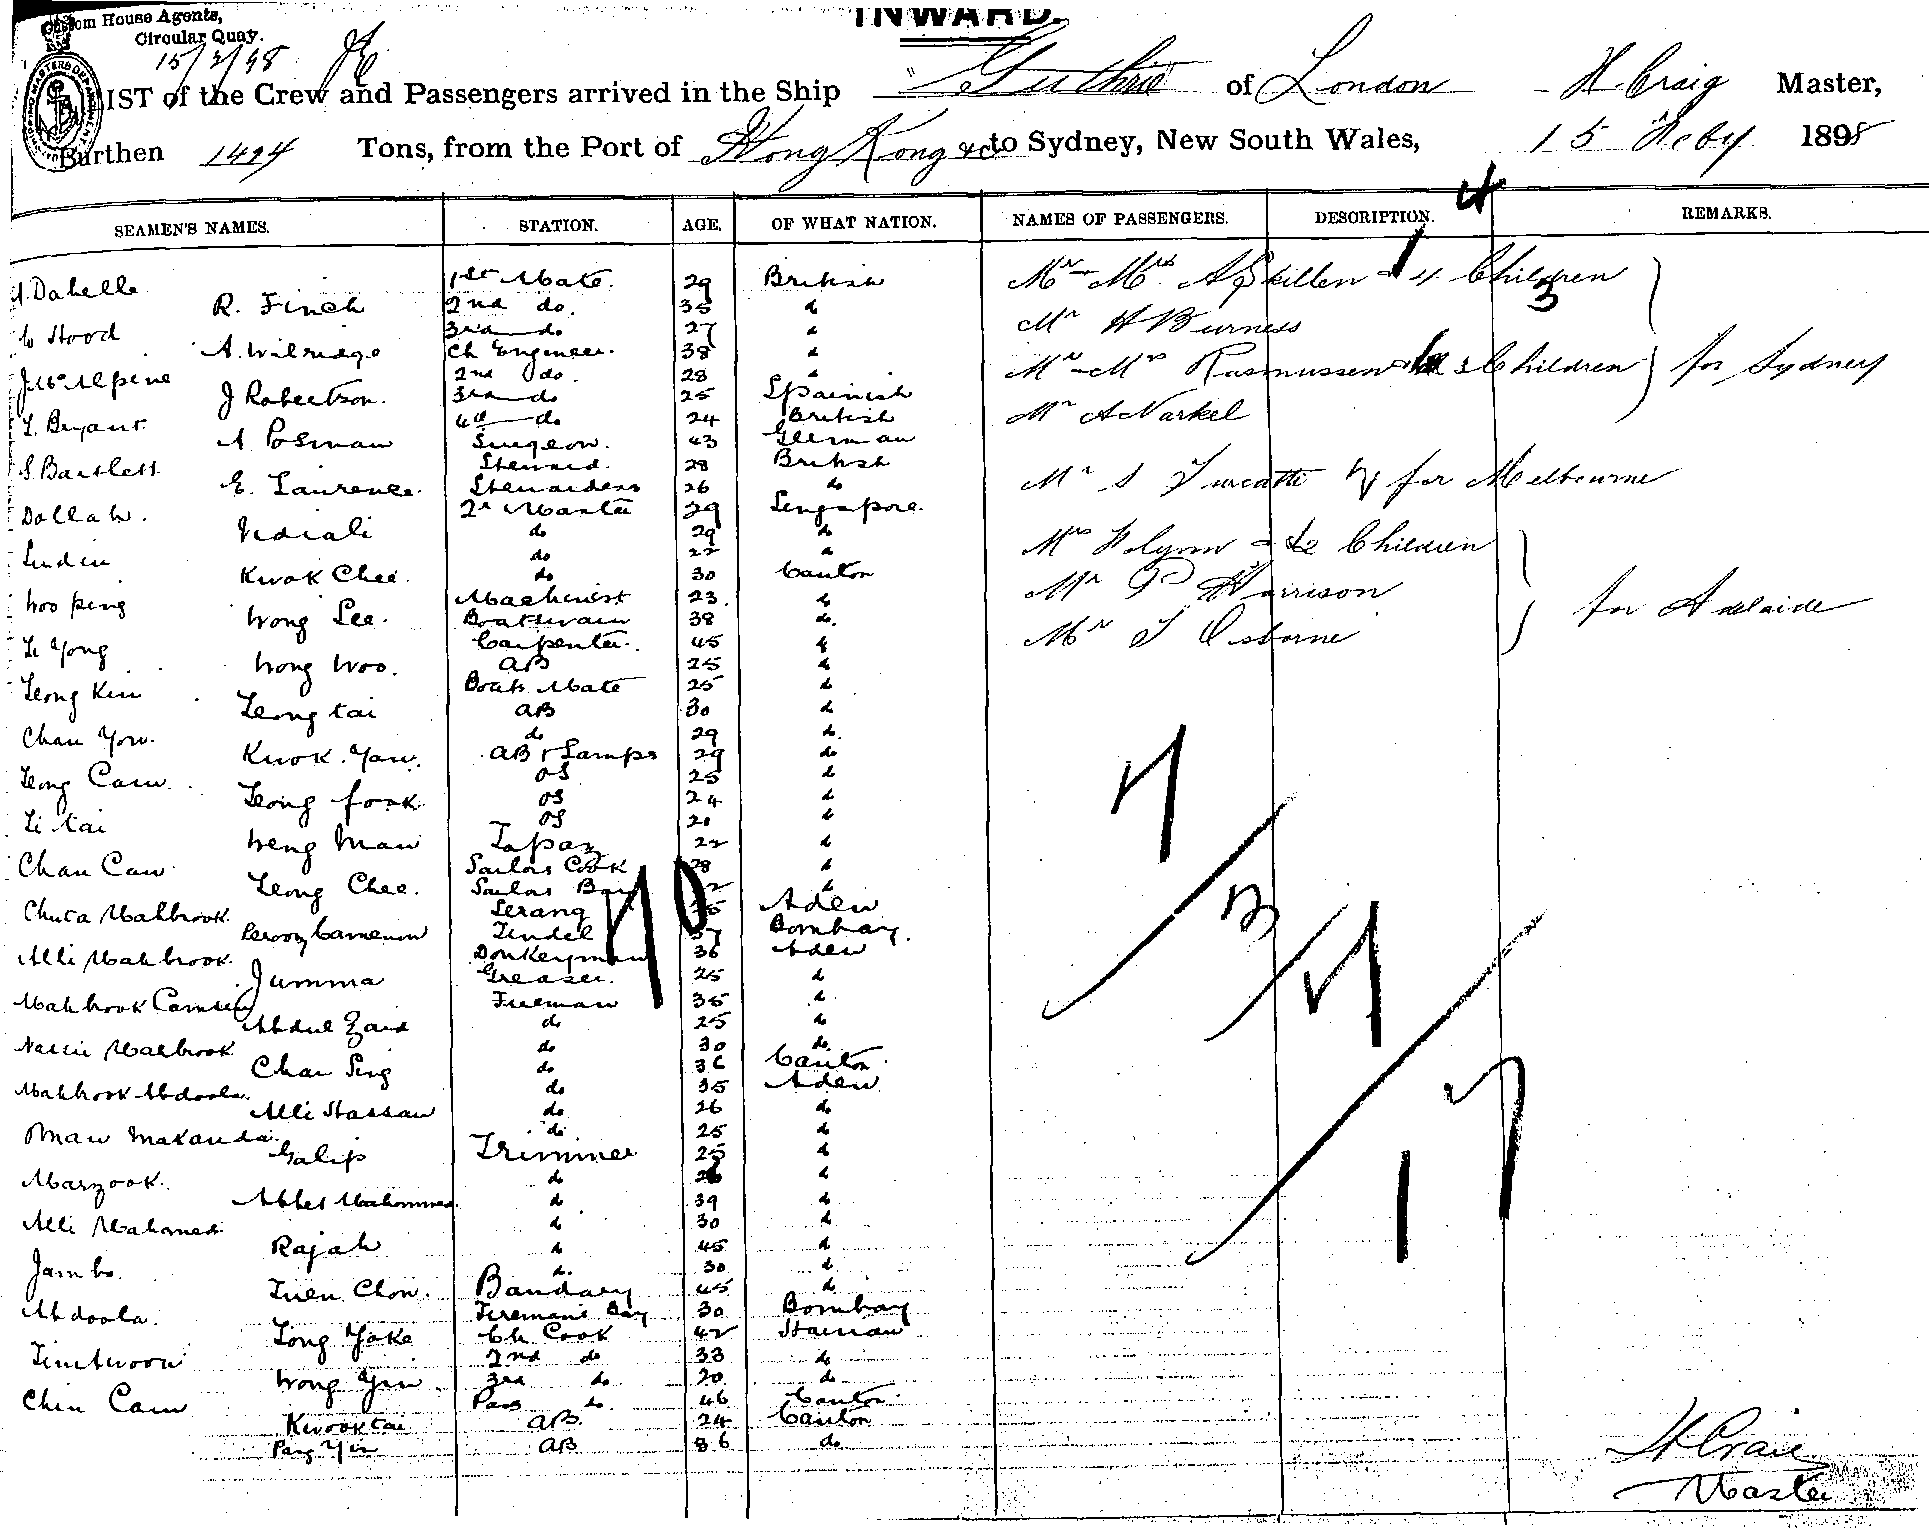 INWARD.
Custom House Agents,
Circular Quay.
15/2/98
LIST of the Crew and Passengers arrived in the Ship "Guthrie of London H Craig Master,
Burthen 1494 Tons, from the Port of Hong Kong &c to Sydney, New South Wales, 15 Feby 1898
4
SEAMEN'S NAMES. STATION. AGE. OF WHAT NATION. NAMES OF PASSENGERS. DESCRIPTION. REMARKS.
1st Mate 29 British Mr Mrs Skillen 4 Children
R. Finch 2nd do. 35 do
C Hood 3rd do 27 do Mr H Burness
A. Wilridge Ch Engineer. 38 do
J McAlpine 2nd do. 28 do Mr Mrs Rasmussen 3 Children for Sydney
J Robertson. 3rd do 25 Spainish
T. Bryant 4th do 24 British Mr A Narkel
A Posman Surgeon. 43 German
S. Bartlett Steward. 28 British
E. Laurence Stewardess 26 do Mr S Turcatti for Melbourne
Dollah. 2r Master 29 Singapore
do 29 do
do 22 do Mrs Flynn 2 Children
Kwok Chee. do 30 Canton
Woo peng Machinist 23 do Mr P Harrison for Adelaide
Wong See. Boatswain 38 do
Li Yong Carpenter. 45 do Mr T Osborne
Wong Woo. AB 25 do
Leong Kin Boats Mate 25 do
Leong tai AB 30 do
Chan Yow. do 29 do
Kwok Yaw. AB & Lamps 29 do
Leong Cam OS 25 do
Leong fook OS 24 do
Li tai OS 20 do
Weng Man Topaz 22 do
Chan Caw Sailors Cook 28 do
Leong Chee. Sailors Boy do
Chuta Mahbrook Serang Aden
Tindel 37 Bombay.
Alli Mahbrook Donkeyman 36 Aden
Jumma Greaser. 25 do
Mahbrook Fireman 35 do
Abdul Zaid do 25 do
Nassir Mahbrook do 30 do
Chan Sing do 36 Canton
Mahbrook Abdoola do 35 Aden
Alli Hassan do 26 do
do 25 do
Galip Trimmer 25 do
Marzook do 26 do
do 39 do
Alli Mahomed do 30 do
Rajah do 45 do
Jambo do 30 do
Tuen Chow. Bandary 45 do
Abdoola Firemans Boy 30 Bombay
Tong Yoke Ch Cook 42 Hainan
2nd do 33 do
Wong Yin 3rd do 20 do
Chin Cam Pass do. 46 Canton
Kwooktai AB. 24 Canton
Pang Yin AB 36 do
H Craig
Master